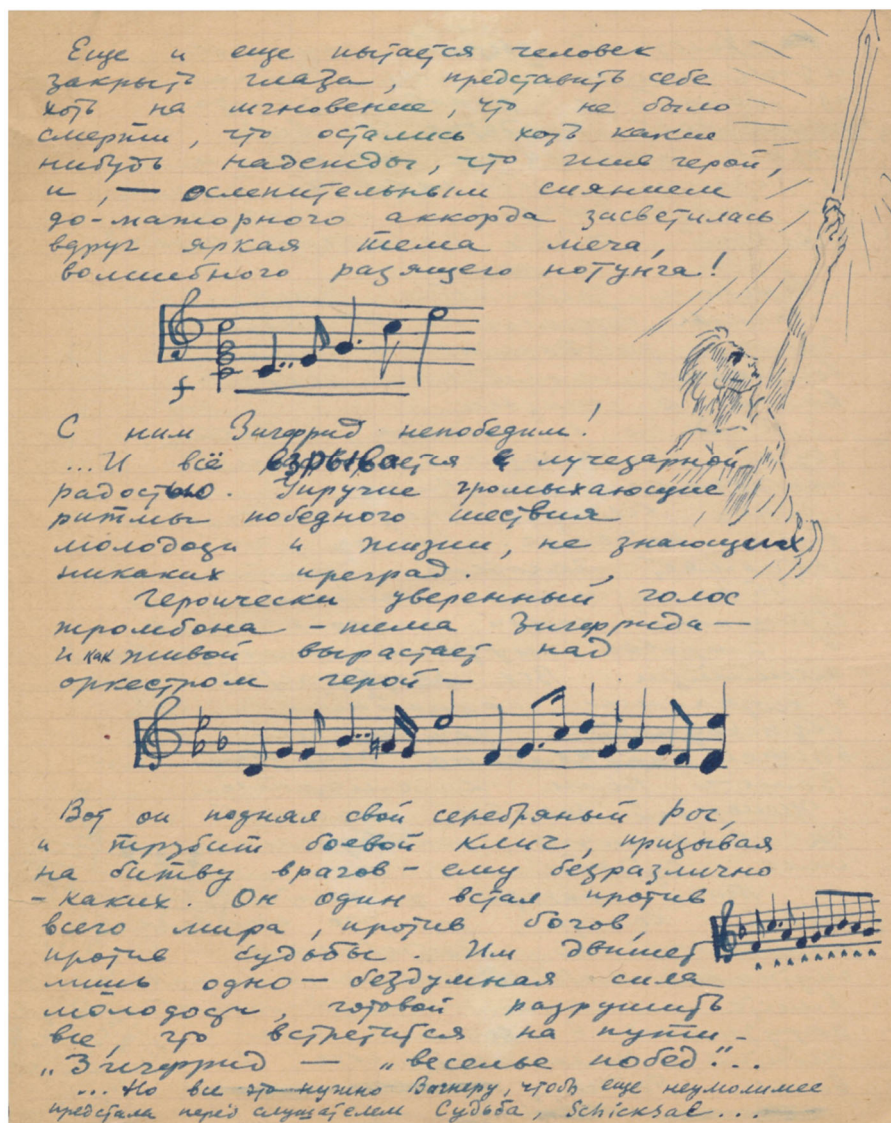 Еще и еще пытается человек
закрыть глаза, представить себе
хоть на мгновение, что не было
смерти, что остались хоть какие
нибудь надежды, что жив герой,
и, — ослепительным сиянием
до-мажорного аккорда засветилась
вдруг яркая тема меча,
волшебного разящего нотунга!
f
С ним Зигфрид непобедим!
...И всё взрывается лучезарной
радостью. Упругие громыхающие
ритмы победного шествия
молодости и жизни, не знающих
никаких преград.
Героически уверенный голос
тромбона – тема Зигфрида —
и как живой вырастает над
оркестром герой —
Вот он поднял свой серебряный рог,
и трубит боевой клич, призывая
на битву врагов – ему безразлично
- каких. Он один встал против
всего мира, против богов,
против судьбы. Им движет
лишь одно – бездумная сила
молодости, готовой разрушить
все, что встретится на пути –
„Зигфрид — „веселье побед"...
... Но все это нужно Вагнеру, чтобы еще неумолимее
предстала перед слушателем Судьба, Schicksal...